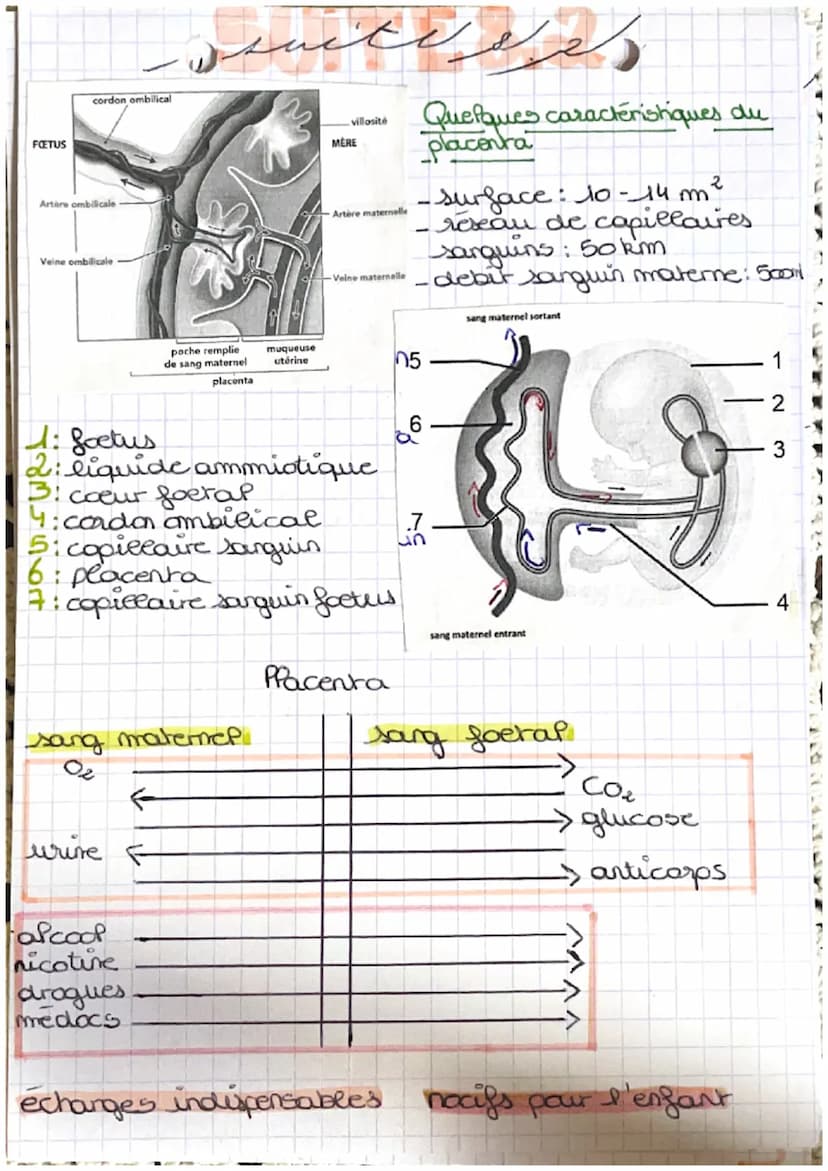 SUITE 8.2
suite 8.2
cordon ombilical
villosité
FŒTUS
MÈRE
Artère ombilicale
Artère maternelle
Veine ombilicale
Veine maternelle
poche remplie
de sang maternel
muqueuse
utérine
placenta
Quelques caractéristiques du
placenta
- surface : 10 - 14 m²
- réseau de capillaires
sanguins : 50 km
- debit sanguin materne : 500ml
1: fœtus
2: liquide ammiotique
3: cœur foetal
4: cordon ombilical
5: capillaire sanguin
6: placenta
7: capillaire sanguin foetus
sang maternel sortant
n5
6
a
.7
in
1
2
3
4
sang maternel entrant
Placenta
sang maternel
sang foetal
O₂
CO₂
glucose
urine
anticorps
alcool
nicotine
drogues
médocs
échanges indispensables
nocifs pour l'enfant